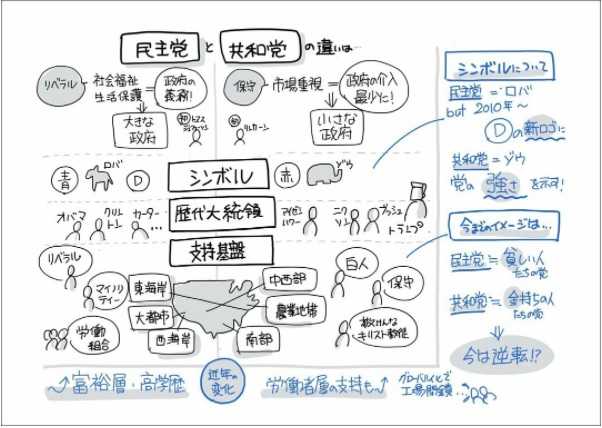 民主党と共和党の違いは…
リベラル
社会福祉
生活保護
=
政府の
義務!
大きな
政府
初
保守
市場重視
=
政府の介入
最少に!
小さな
政府
初
リンカーン
青
ロバ
D
シンボル
赤
ゾウ
オバマ
クリントン
カーター
…
歴代大統領
アイゼン
ハワー
ニクソン
ブッシュ
トランプ
支持基盤
リベラル
マイノリ
ティー
労働
組合
東海岸
大都市
西海岸
中西部
農業地帯
南部
白人
保守
キリスト教徒
富裕層・高学歴
近年の
変化
労働者層の支持も
グローバル化で
工場閉鎖…
シンボルについて
民主党=ロバ
but 2010年~
Dの新ロゴに
共和党=ゾウ
党の強さを示す!
今までのイメージは…
民主党≒貧しい人
たちの党
共和党≒金持ちの人
たちの党
今は逆転!?